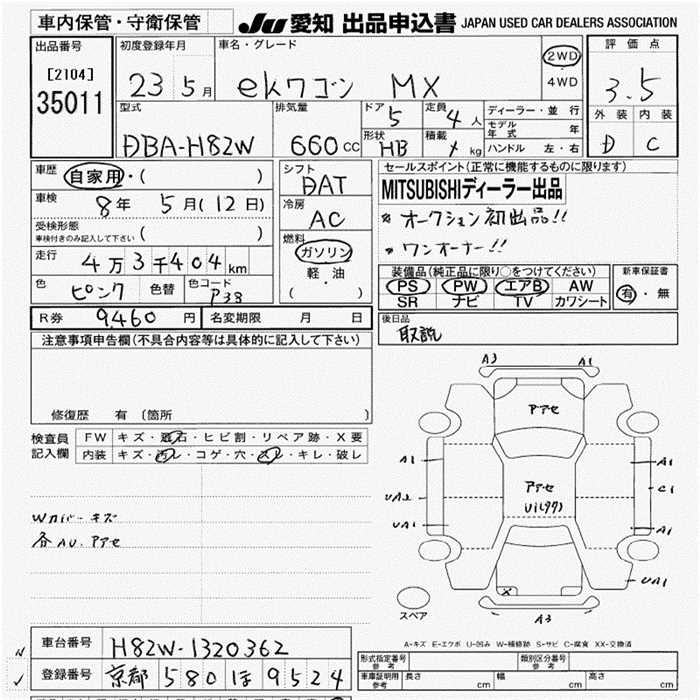 車内保管・守衛保管 JU 愛知 出品申込書 JAPAN USED CAR DEALERS ASSOCIATION
出品番号 初度登録年月 車名・グレード 2WD 4WD 評価点
[2104] 23 5月 ekワゴン MX 3.5
35011
型式 排気量 ドア 5 定員 4人 ディーラー・並行 外装 内装
モデル年式 年
DBA-H82W 660cc 形状 HB 積載 kg ハンドル 左・右 D C
車歴 自家用・( ) シフト DAT セールスポイント(正常に機能するものに限ります)
車検 8年 5月(12日) 冷房 AC MITSUBISHIディーラー出品
受検形態 ( ) * オークション初出品!!
車検付きのみ記入して下さい
燃料 ガソリン 軽・油 ( ) * ワンオーナー!!
走行 4万3千404km
装備品(純正品に限り○をつけてください) 新車保証書
色 ピンク 色替 色コード P38 PS PW エアB AW 有・無
SR ナビ TV カワシート
R券 9,460円 名変期限 月 日 後日品
取説
注意事項申告欄(不具合内容等は具体的に記入して下さい)
修復歴 有 〔箇所 〕
検査員記入欄 FW キズ・飛石・ヒビ割・リペア跡・X要
内装 キズ・汚レ・コゲ・穴・スレ・キレ・破レ
A3 A1
アアセ
A1 A1
アアセ C1
UA2 U1(99)
UA1 A1
Wカバーキズ
各AU.アアセ
UA1
X
スペア A3
A-キズ E-エクボ U-凹み W-補修跡 S-サビ C-腐食 XX-交換済
車台番号 H82W-1320362 形式指定番号 参考 類別区分番号 参考
登録番号 京都 580 ほ 9524 車庫証明用 参考 長さ cm 幅 cm 高さ cm